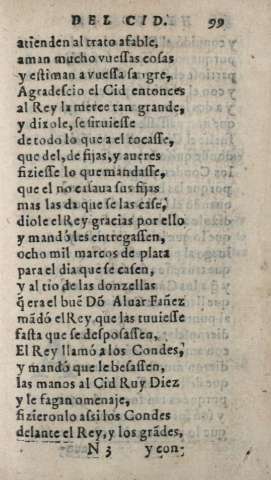 DEL CID. 99
atienden al trato afable,
aman mucho vuessas cosas
y estiman a vuessa sangre,
Agradescio el Cid entonces
al Rey la merce tan grande,
y dixole, se siruiesse
de todo lo que a el tocasse,
que del, de fijas, y aueres
fiziesse lo que mandasse,
que el no casaua sus fijas
mas las da que se las case,
diole el Rey gracias por ello
y mandó les entregassen,
ocho mil marcos de plata
para el dia que se casen,
y al tio de las donzellas
q̃ era el buẽ Dõ Aluar Fañez
mãdó el Rey que las tuuiesse
fasta que se desposassen,
El Rey llamó a los Condes,
y mandó que le besassen,
las manos al Cid Ruy Diez
y le fagan omenaje,
fizieronlo assi los Condes
delante el Rey, y los grãdes,
N 3 y con-